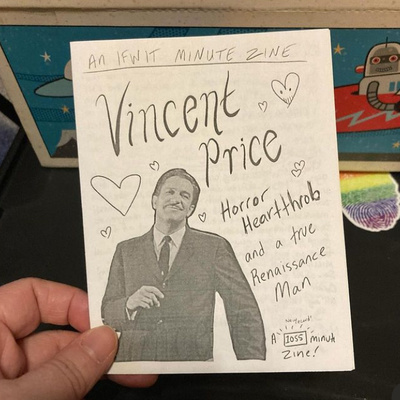 AN IFWIT MINUTE ZINE
Vincent
Price
Horror
Heartthrob
and a true
Renaissance
Man
New Record!
A 1055 minut
Zine!